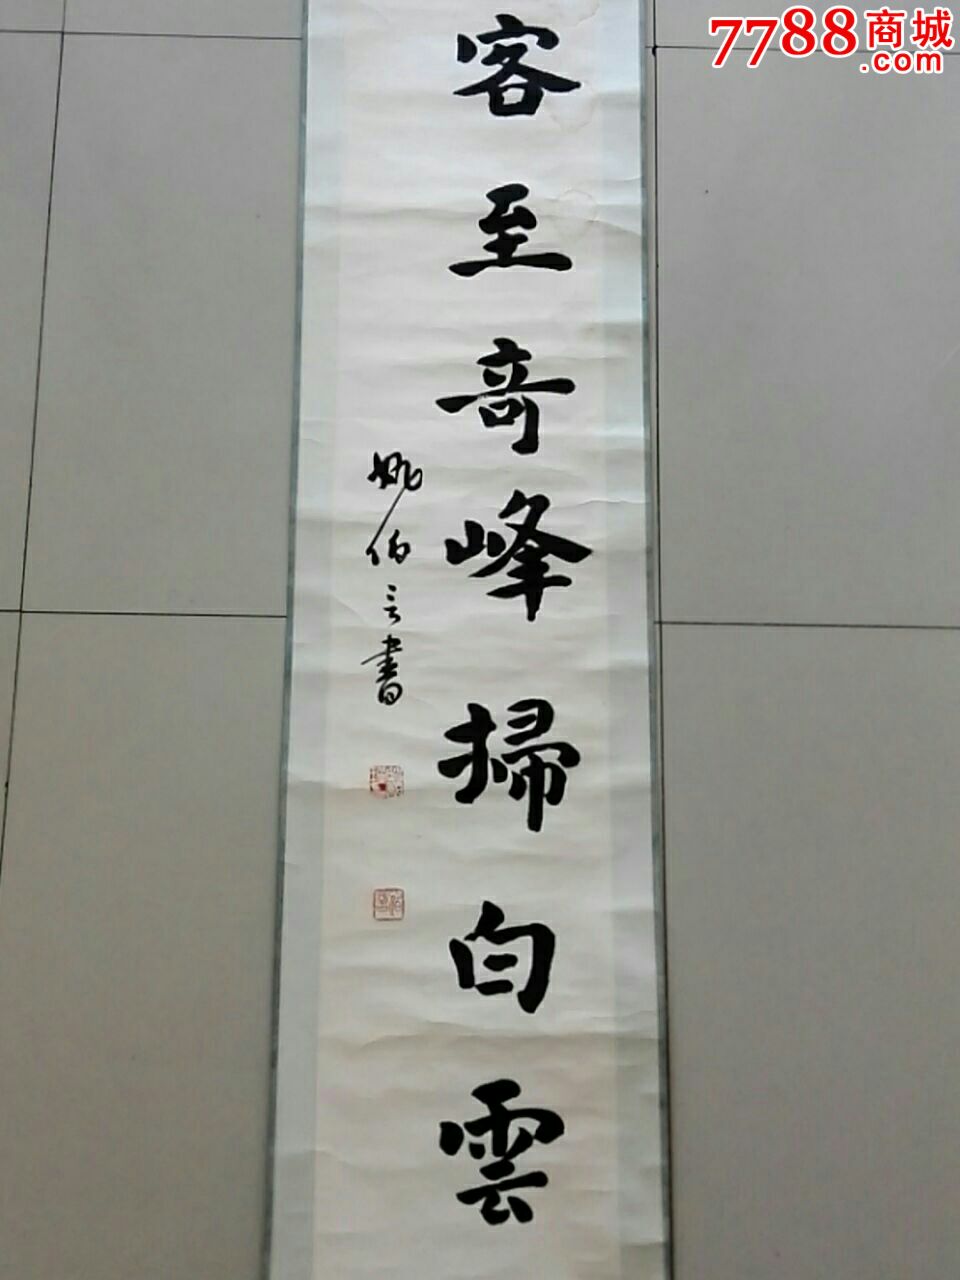 7788商城
.com
客至奇峰掃白雲
姚伯言書